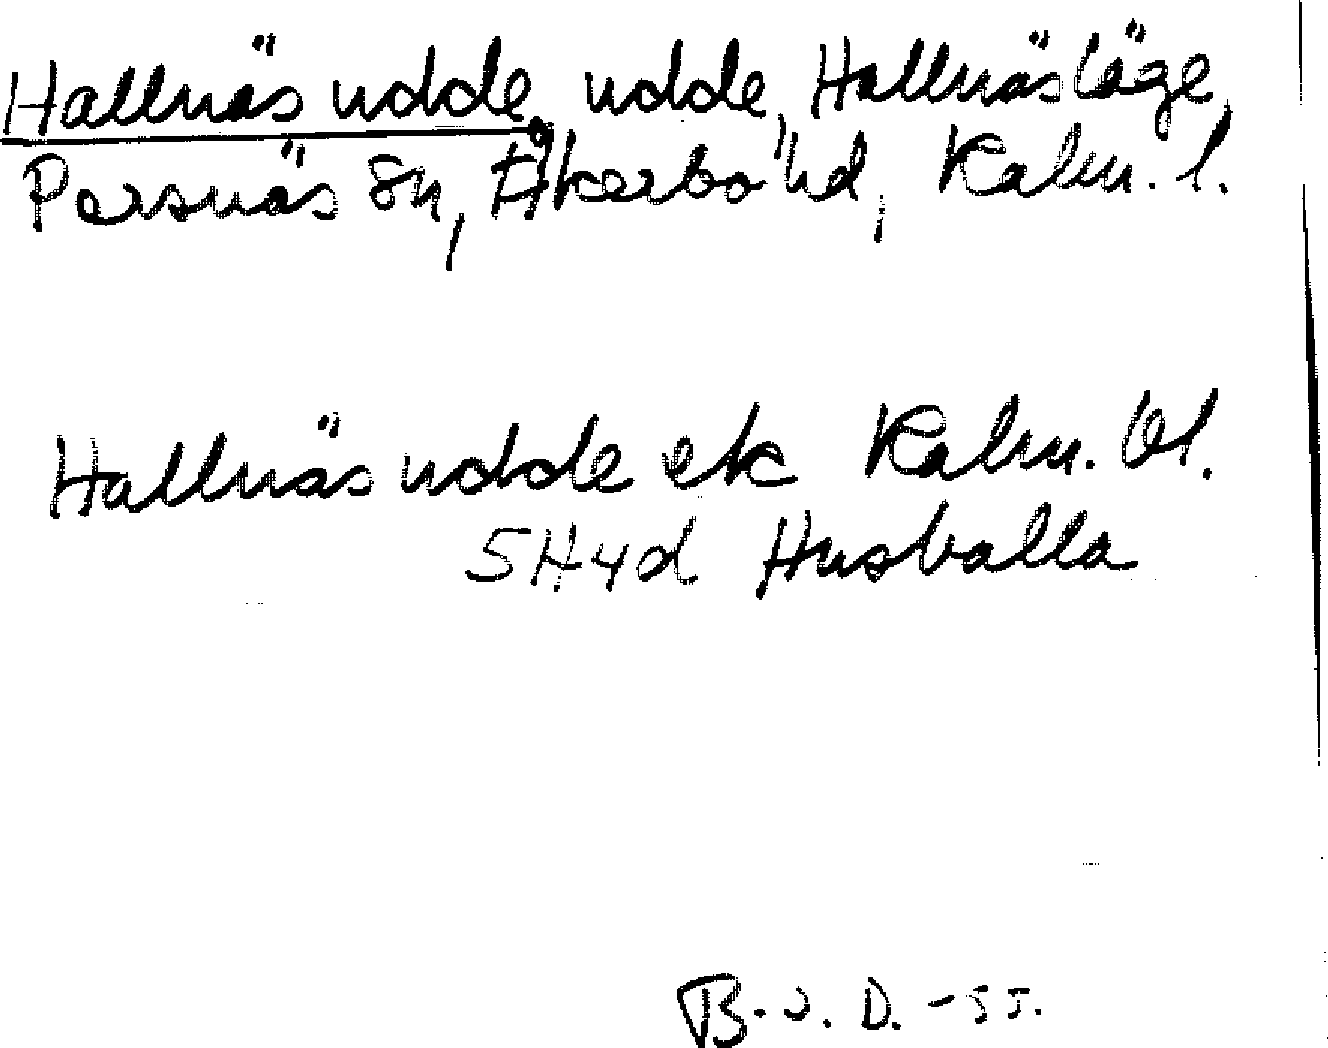 Hallnäs udde, udde, Hallnäs läge,
Persnäs sn, Åkerbo hd, Kalm. l.
Hallnäs udde ek Kalm. bl.
5H4d Husvalla
B. J. D. -55.